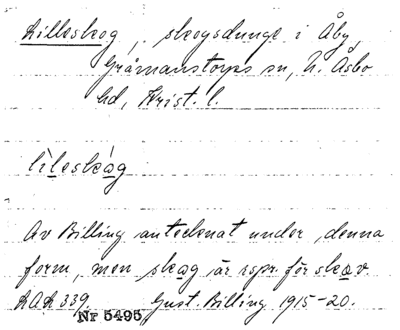 Lilleskog, skogsdunge i Åby,
Gråmanstorps sn, N. Åsbo
hd, Krist. l.
lìleskǻg
Av Billing antecknat under denna
form, men skåg är rspr. för skåv.
LAL 339. Gust. Billing 1915-20.
Nr 5495